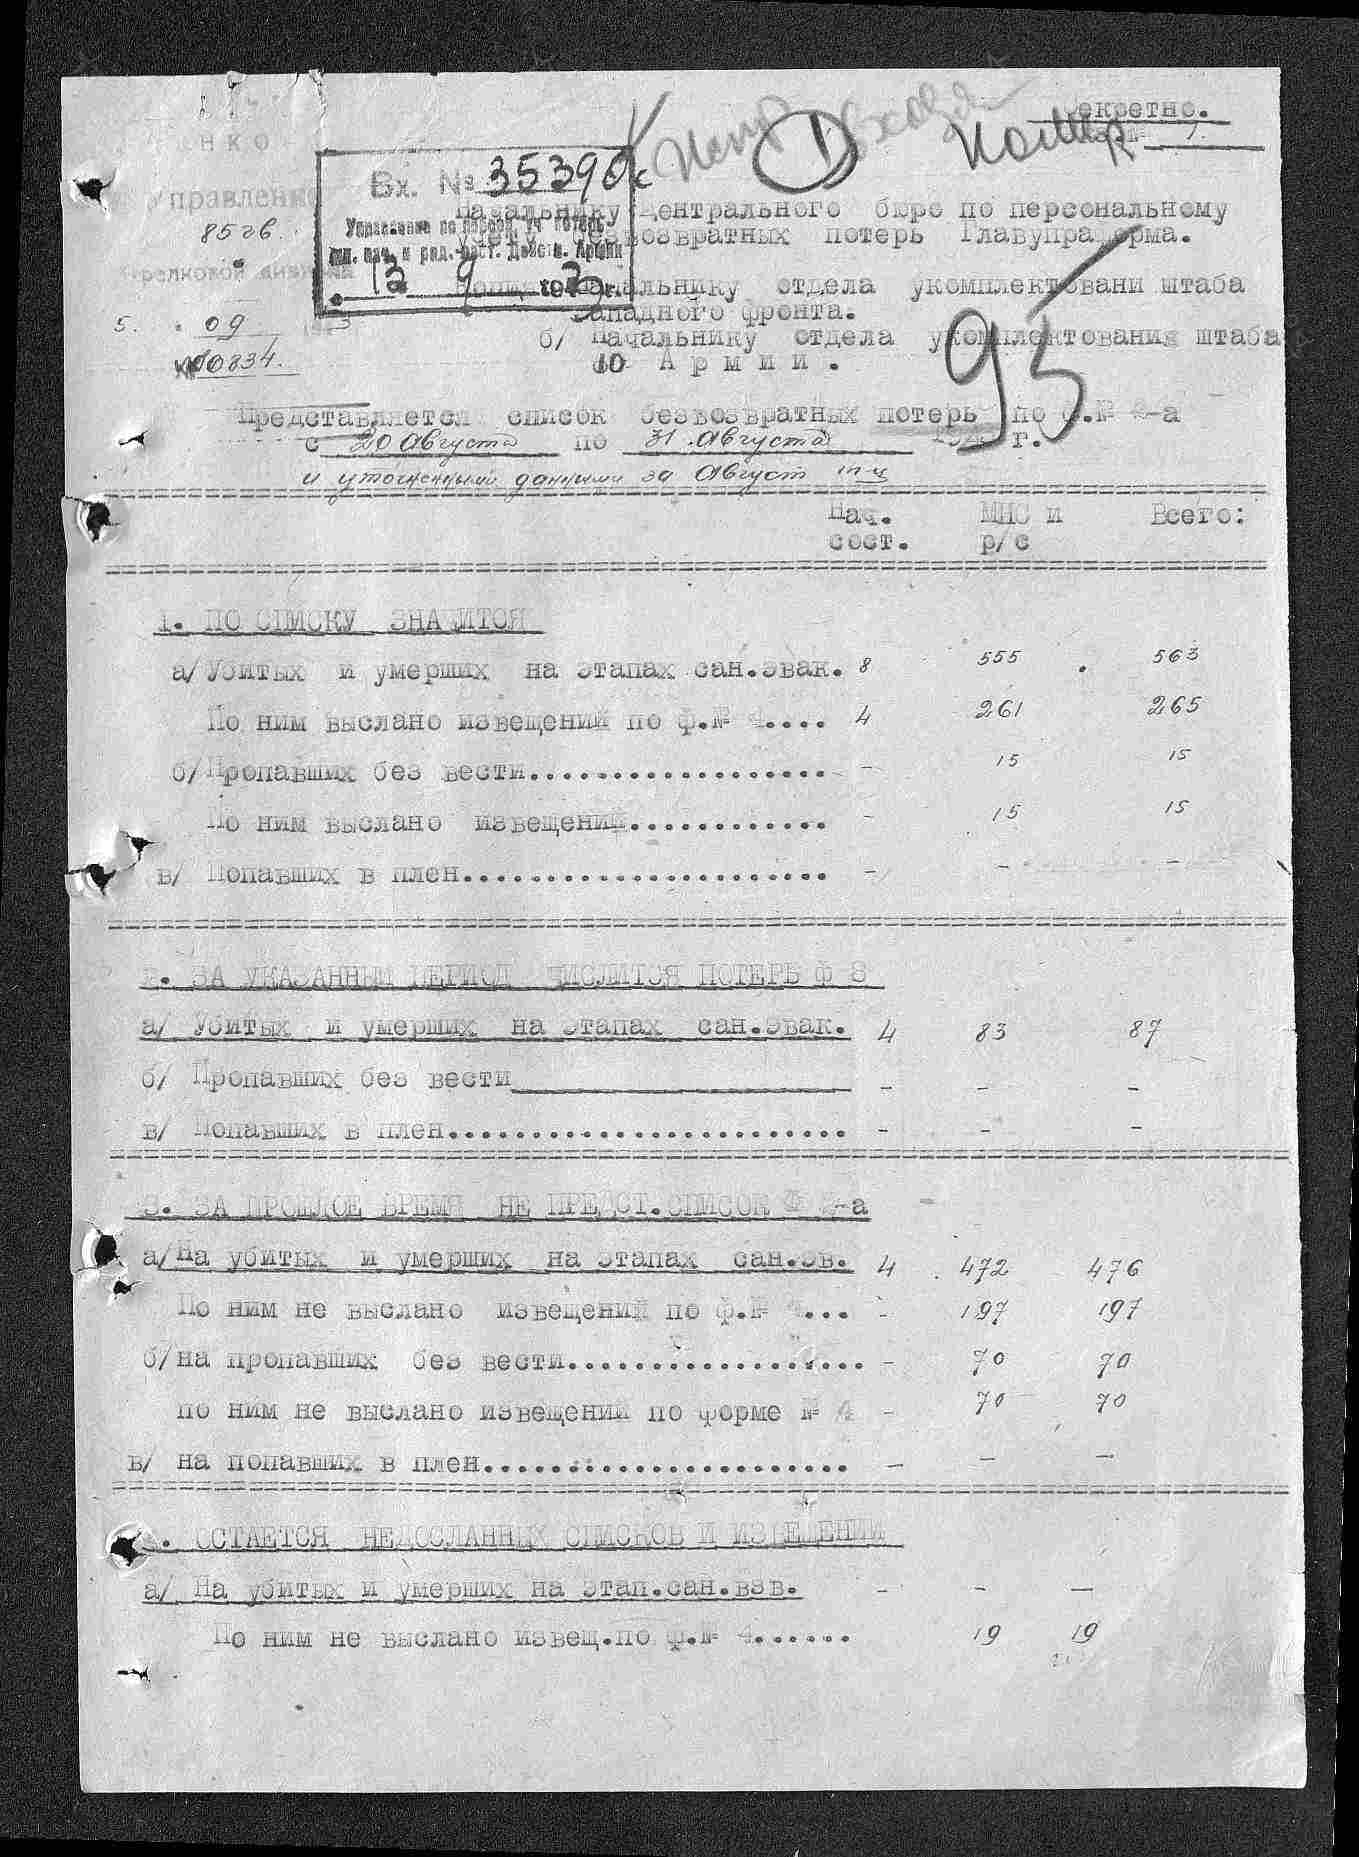 Секретно.
НКО
Управление
85 гв.
стрелковой дивизии
5. 09
№ 0834.
Вх. № 35390с
Управление по персон. уч. потерь
мл. нач. и ряд. сост. Действ. Армии
13 9 1943г.
Начальнику Центрального бюро по персональному
учету безвозвратных потерь Главупраформа.
Копия: Начальнику отдела укомплектовани штаба
Западного фронта.
б/ Начальнику отдела укомплектования штаба
10 Армии.
95
Представляется список безвозвратных потерь по ф.№ 2-а
с 20 Августа по 31 Августа г.
и уточненными данными за Август м-ц
Нач. сост. МНС и р/с Всего:
1. ПО СПИСКУ ЗНАЧИТСЯ
а/ Убитых и умерших на этапах сан.эвак. 8 555 563
По ним выслано извещений по ф.№ 4.... 4 261 265
б/ Пропавших без вести.................. - 15 15
По ним выслано извещений............ - 15 15
в/ Попавших в плен...................... - - -
2. ЗА УКАЗАННЫЙ ПЕРИОД ЧИСЛИТСЯ ПОТЕРЬ Ф 8
а/ Убитых и умерших на этапах сан.эвак. 4 83 87
б/ Пропавших без вести - - -
в/ Попавших в плен........................ - - -
3. ЗА ПРОШЛОЕ ВРЕМЯ НЕ ПРЕДСТ.СПИСОК Ф 2-а
а/ На убитых и умерших на этапах сан.эв. 4 472 476
По ним не выслано извещений по ф.№ 4... - 197 197
б/ на пропавших без вести.................. - 70 70
по ним не выслано извещений по форме № 4 - 70 70
в/ на попавших в плен...................... - - -
4. ОСТАЕТСЯ НЕДОСЛАННЫХ СПИСКОВ И ИЗВЕЩЕНИЙ
а/ На убитых и умерших на этап.сан.эвв. - - -
По ним не выслано извещ.по ф.№ 4...... 19 19